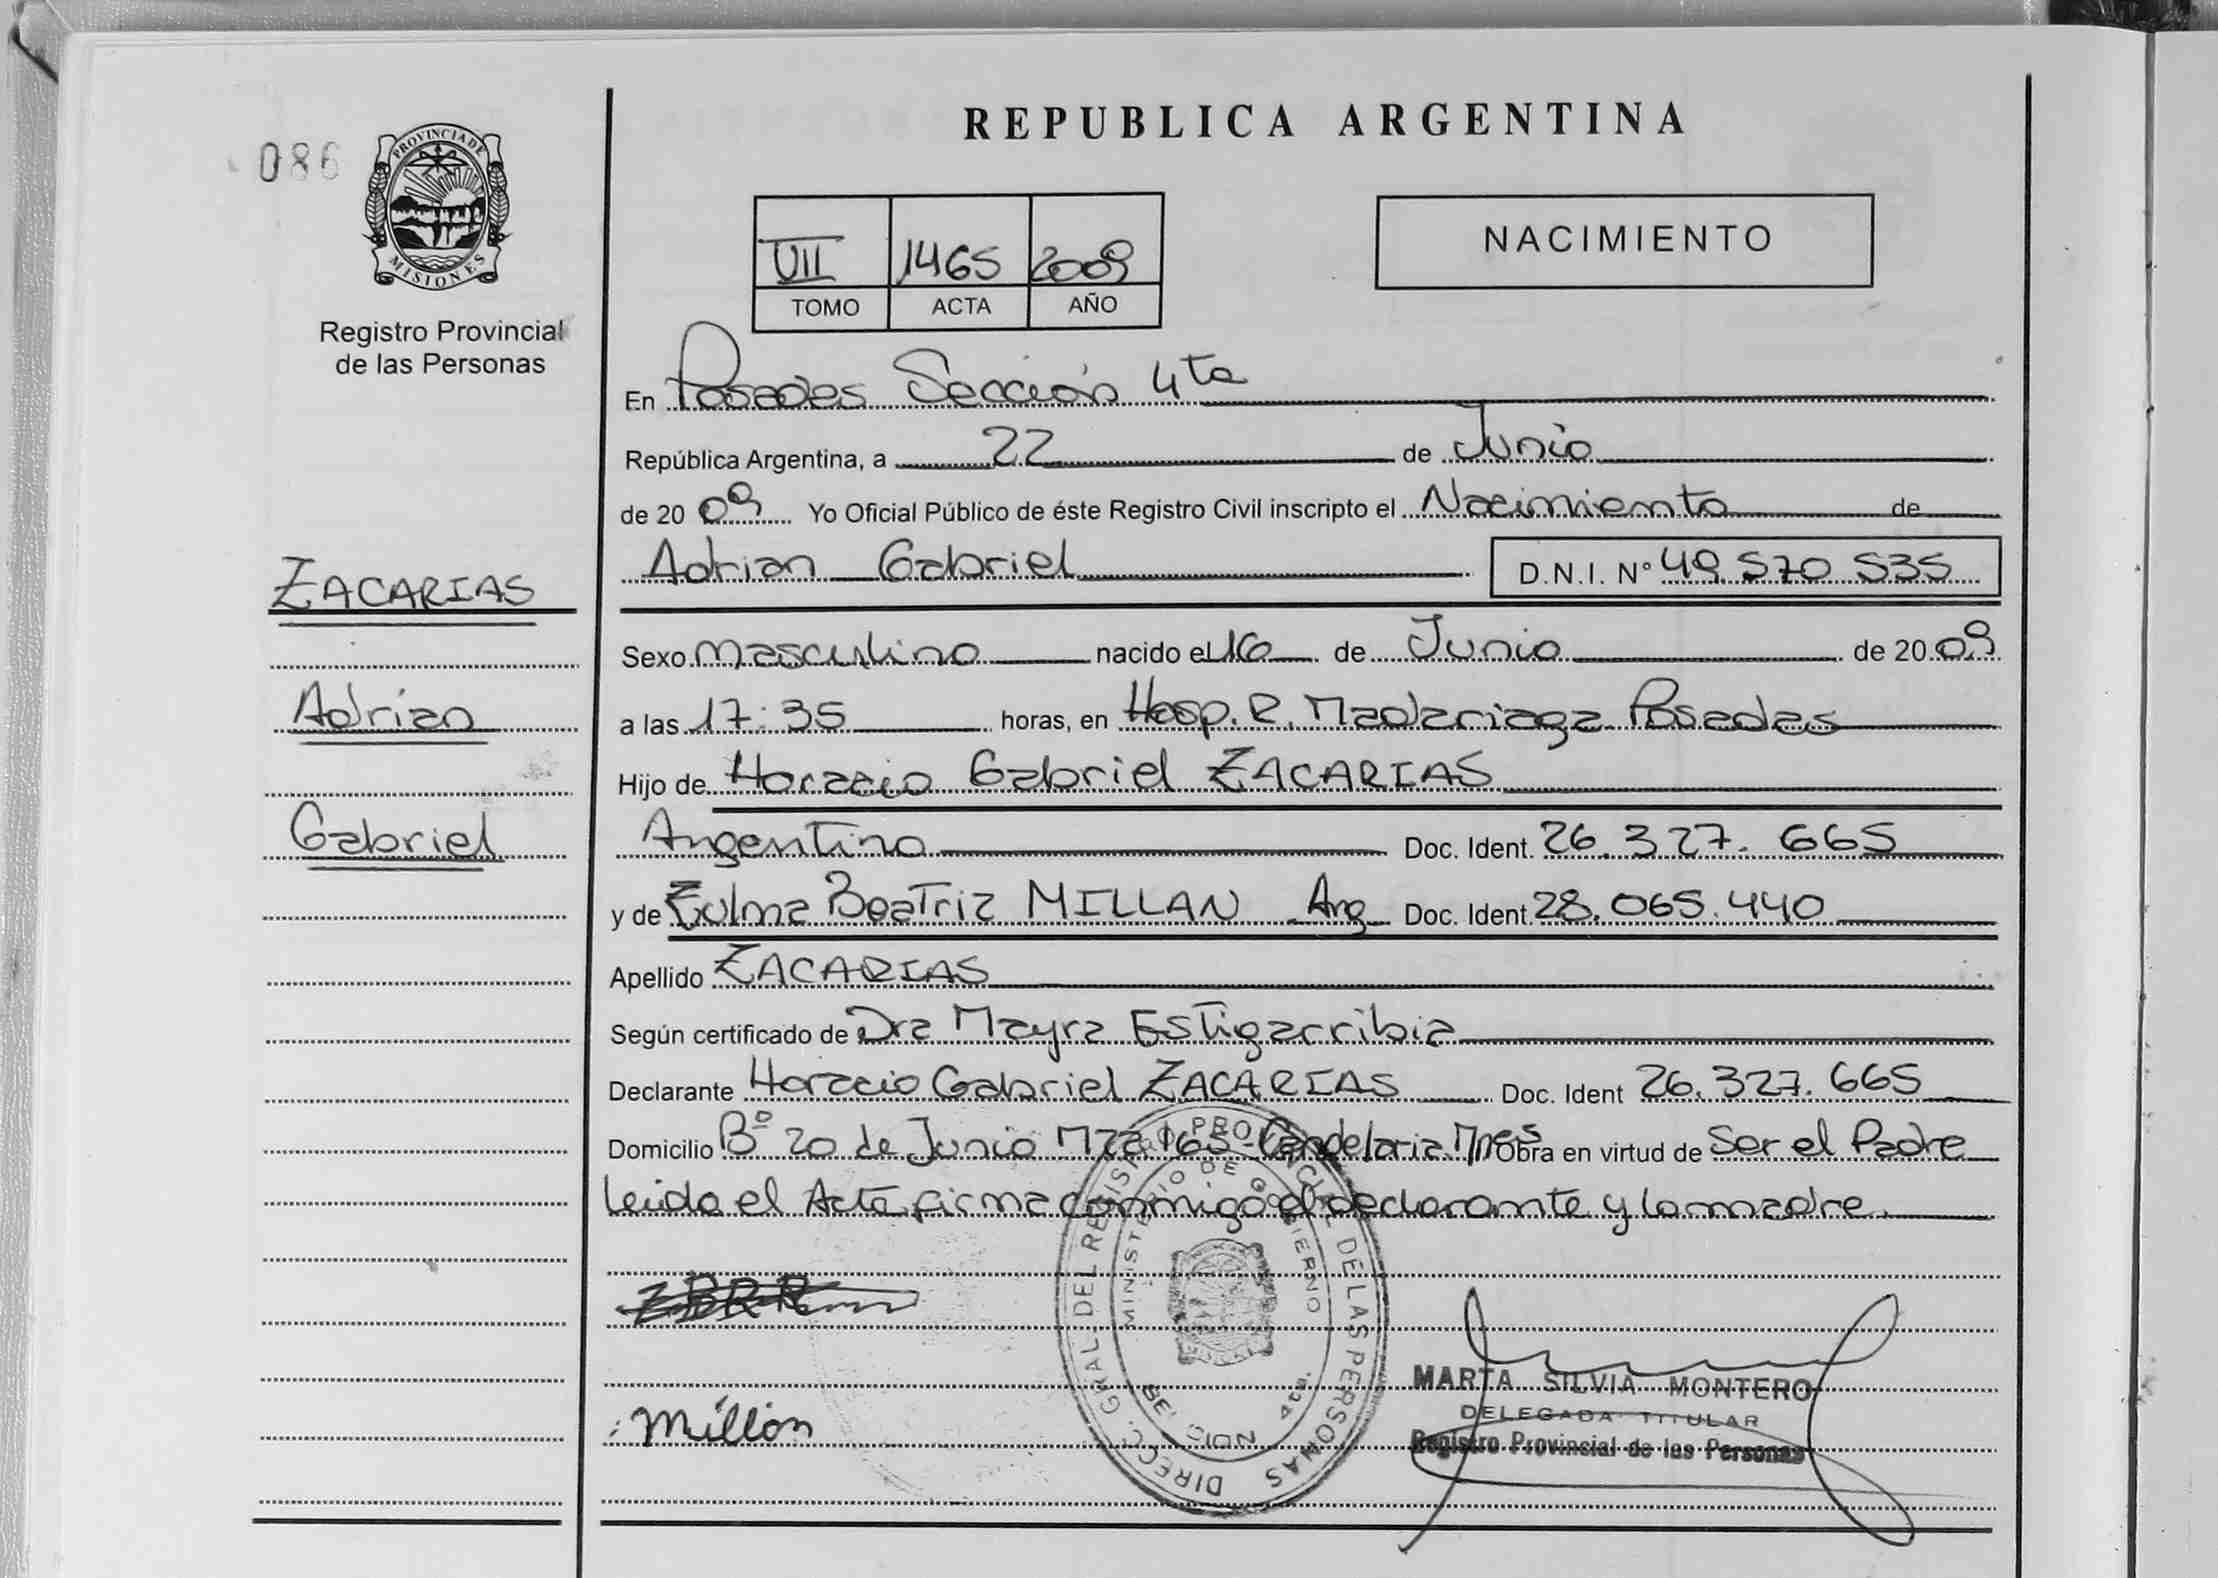 REPUBLICA ARGENTINA
086
PROVINCIA DE
MISIONES
Registro Provincial
de las Personas
VII 1465 2009
TOMO ACTA AÑO
NACIMIENTO
En Posadas Sección 4ta
República Argentina, a 22 de Junio
de 20 09 Yo Oficial Público de éste Registro Civil inscripto el Nacimiento de
Adrian Gabriel D.N.I. Nº 49 570 535
ZACARIAS
Adrian
Gabriel
Sexo Masculino nacido el 16 de Junio de 20 09
a las 17:35 horas, en Hosp. R. Madariaga Posadas
Hijo de Horacio Gabriel ZACARIAS
Argentino Doc. Ident. 26.327.665
y de Zulma Beatriz MILLAN Arg Doc. Ident. 28.065.440
Apellido ZACARIAS
Según certificado de Dra Mayra Estigarribia
Declarante Horacio Gabriel ZACARIAS Doc. Ident 26.327.665
Domicilio Bº 20 de Junio Mza 165 - Candelaria Mnes Obra en virtud de Ser el Padre
leida el Acta firma conmigo el declarante y la madre.
DIRECC. GRAL DEL REGIST. PROVINCIAL DE LAS PERSONAS
MINISTERIO DE GOBIERNO
4ta.
Millán
MARTA SILVIA MONTERO
DELEGADA TITULAR
Registro Provincial de las Personas